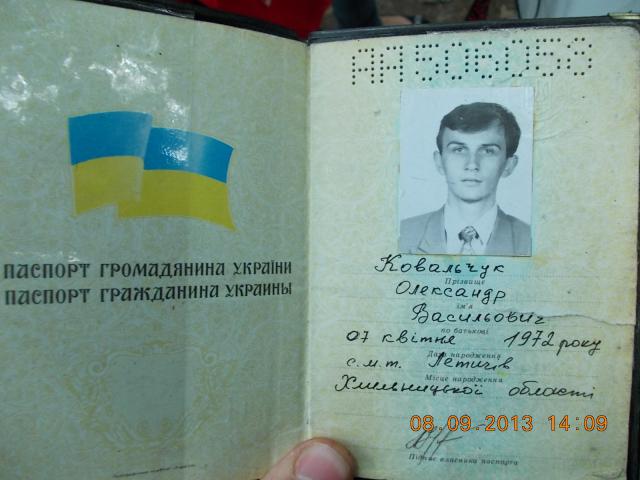 ПАСПОРТ ГРОМАДЯНИНА УКРАЇНИ
ПАСПОРТ ГРАЖДАНИНА УКРАИНЫ
АА506058
Ковальчук
Прізвище
Олександр
ім'я
Васильович
по батькові
07 квітне 1972 року
Дата народження
с.м.т. Летичів
Місце народження
Хмельницької області
08.09.2013 14:09
Підпис власника паспорта